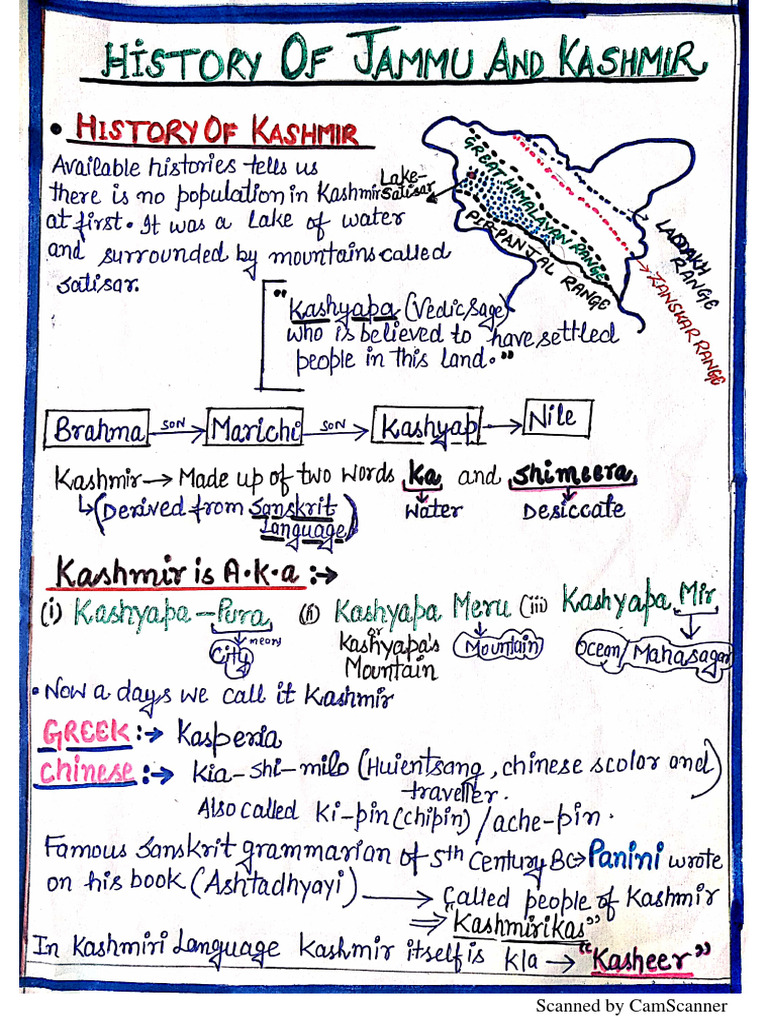 HISTORY OF JAMMU AND KASHMIR
• HISTORY OF KASHMIR
Available histories tells us
there is no population in Kashmir
at first. It was a Lake of water
and surrounded by mountains called
Satisar.
Lake-
Satisar
GREAT HIMALAYAN RANGE
PIR-PANJAL RANGE
LADDAKH
RANGE
ZANSKAR RANGE
"Kashyapa (Vedic Sage)
who is believed to have settled
people in this land."
Brahma son Marichi son Kashyap Nile
Kashmir → Made up of two words ka and shimeera
(Derived from Sanskrit
Language)
Water Desiccate
Kashmir is A.k.a :→
(i) Kashyapa-Pura (ii) Kashyapa Meru (iii) Kashyapa Mir
means
City
or
Kashyapa's
Mountain
Mountain
Ocean/Mahasagar
• Now a days we call it Kashmir
GREEK :→ Kasperia
Chinese :→ Kia-Shi-milo (Huientsang, chinese scolor and)
traveller.
Also called Ki-pin (chipin) / ache-pin.
Famous Sanskrit grammarian of 5th Century BC → Panini wrote
on his book (Ashtadhyayi) → Called people of Kashmir
⇒ "Kashmirikas"
In Kashmiri Language Kashmir itself is k/a → "Kasheer"
Scanned by CamScanner